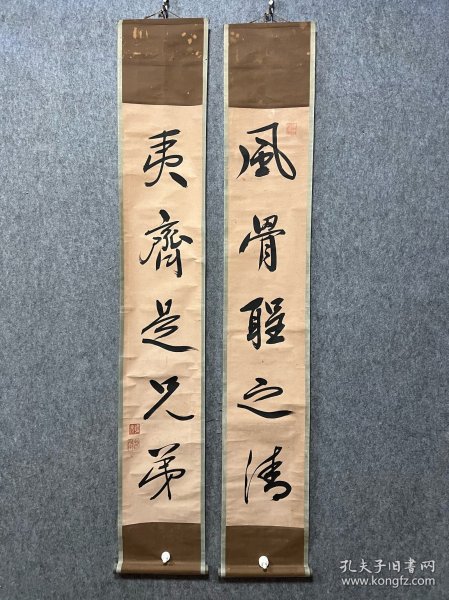 風骨聖之清
夷齊是兄弟
孔夫子旧书网
www.kongfz.com